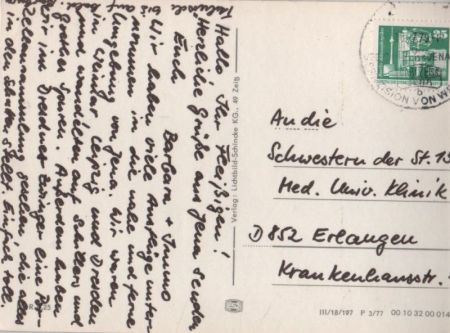 Hallo Ihr Fleißigen!
Herzliche Grüße aus Jena senden
Euch
Barbara +
Wir haben viele Ausflüge unter-
nommen in die nahe und ferne
Umgebung von Jena. Wir waren
in Weimar, Leipzig und Dresden
und wandelten auf Schillers und
Spuren. Außerdem haben
wir im Dresdner Zwinger eine
sammlung gesehen, die alles
in den Schatten stellt. Einfach toll.
Verlag: Lichtbild-Schincke KG., 49 Zeitz
25
JENA
An die
Schwestern der St. 13
Med. Univ. Klinik
D 852 Erlangen
Krankenhausstr.
III/18/197 P 3/77 00 10 32 00 014